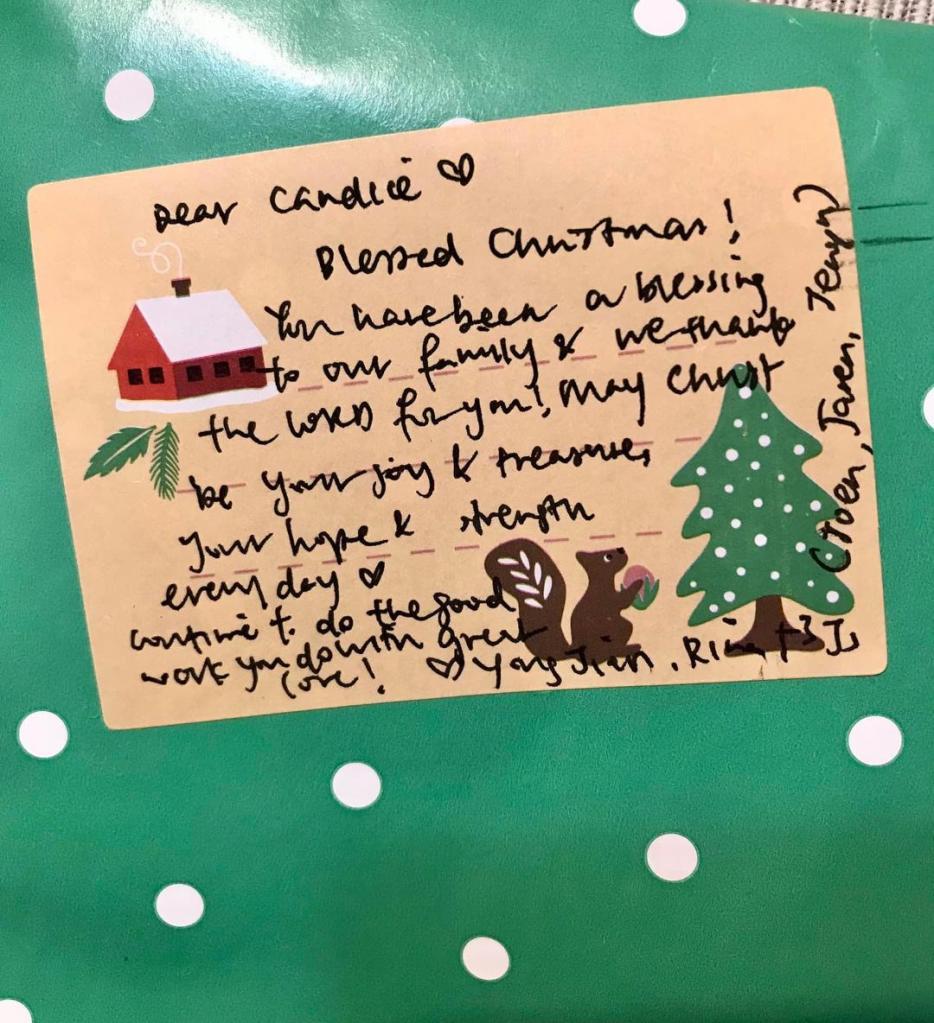 Dear Candice ♡
Blessed Christmas!
You have been a blessing
to our family & we thank
the LORD for you! May Christ
be your joy & treasure,
your hope & strength
every day ♡
continue to do the good
work you do with great
love! ♡ Yong Jian, Rina + 3 Js
(Joen, Jaren, Jenyn)